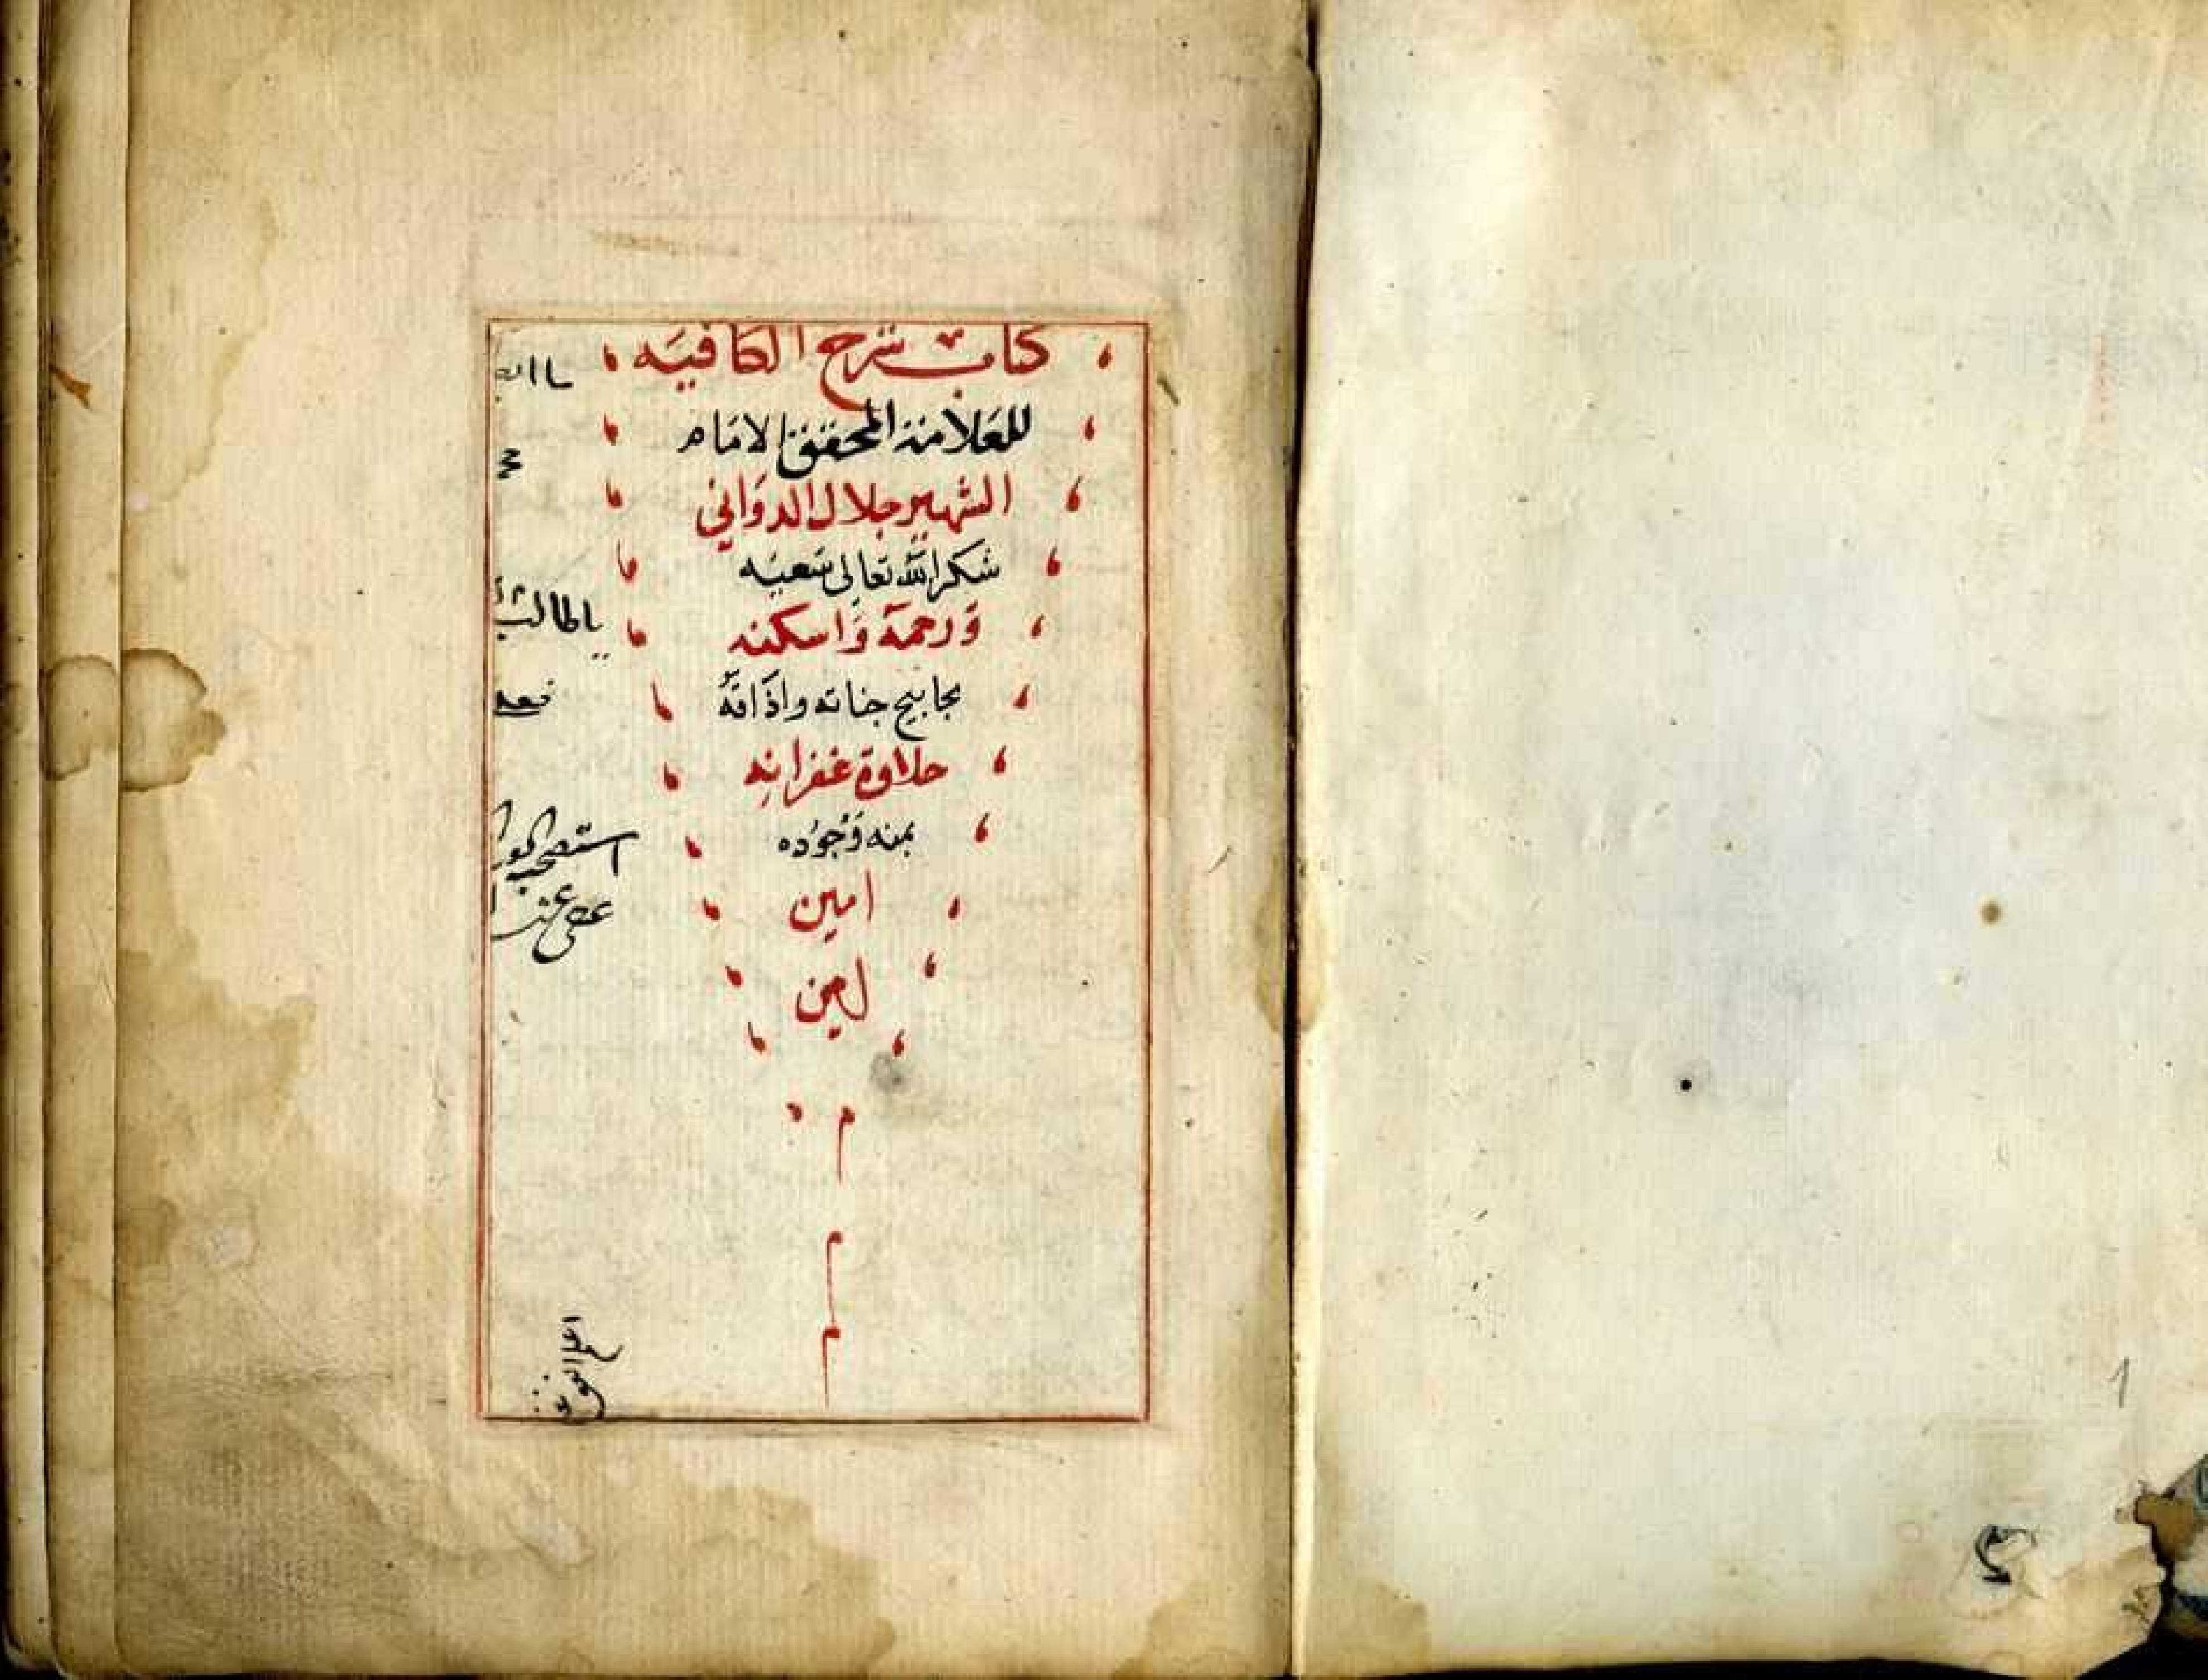 كتاب شرح الكافيه
للعلامة المحقق الامام
الشهير جلال الدواني
شكر الله تعالى سعيه
ورحمة واسكنه
بجابيح جناته واذاقه
حلاوة غفرانه
بمنه وجوده
امين
امين
م
م
م
ياطالب
استصحبه
عفى عنه